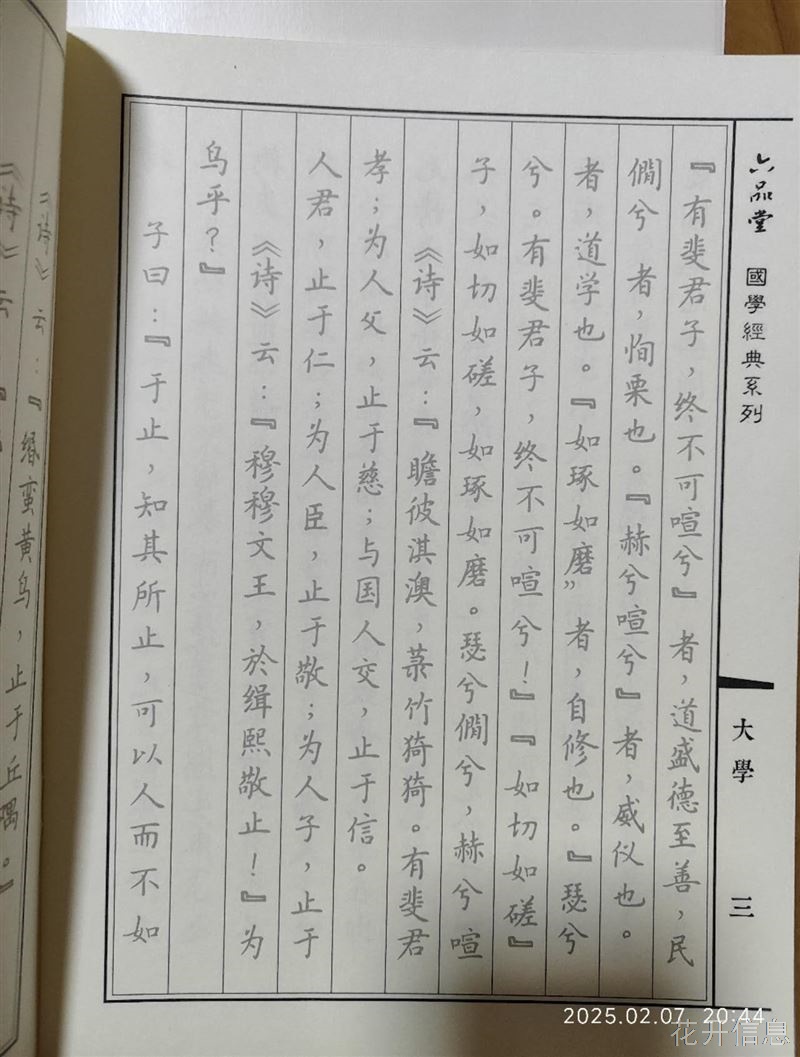 《诗》云
《诗》云：『缗蛮黄鸟，止于丘隅。』
子曰：『于止，知其所止，可以人而不如
鸟乎？』
《诗》云：『穆穆文王，於缉熙敬止！』为
人君，止于仁；为人臣，止于敬；为人子，止于
孝；为人父，止于慈；与国人交，止于信。
《诗》云：『瞻彼淇澳，菉竹猗猗。有斐君
子，如切如磋，如琢如磨。瑟兮僩兮，赫兮喧
兮。有斐君子，终不可喧兮！』『如切如磋』
者，道学也。『如琢如磨”者，自修也。』瑟兮
僩兮 者，恂栗也。『赫兮喧兮』者，威仪也。
『有斐君子，终不可喧兮』者，道盛德至善，民
六品堂 國學經典系列
大學
三
2025.02.07 20:44
花开信息